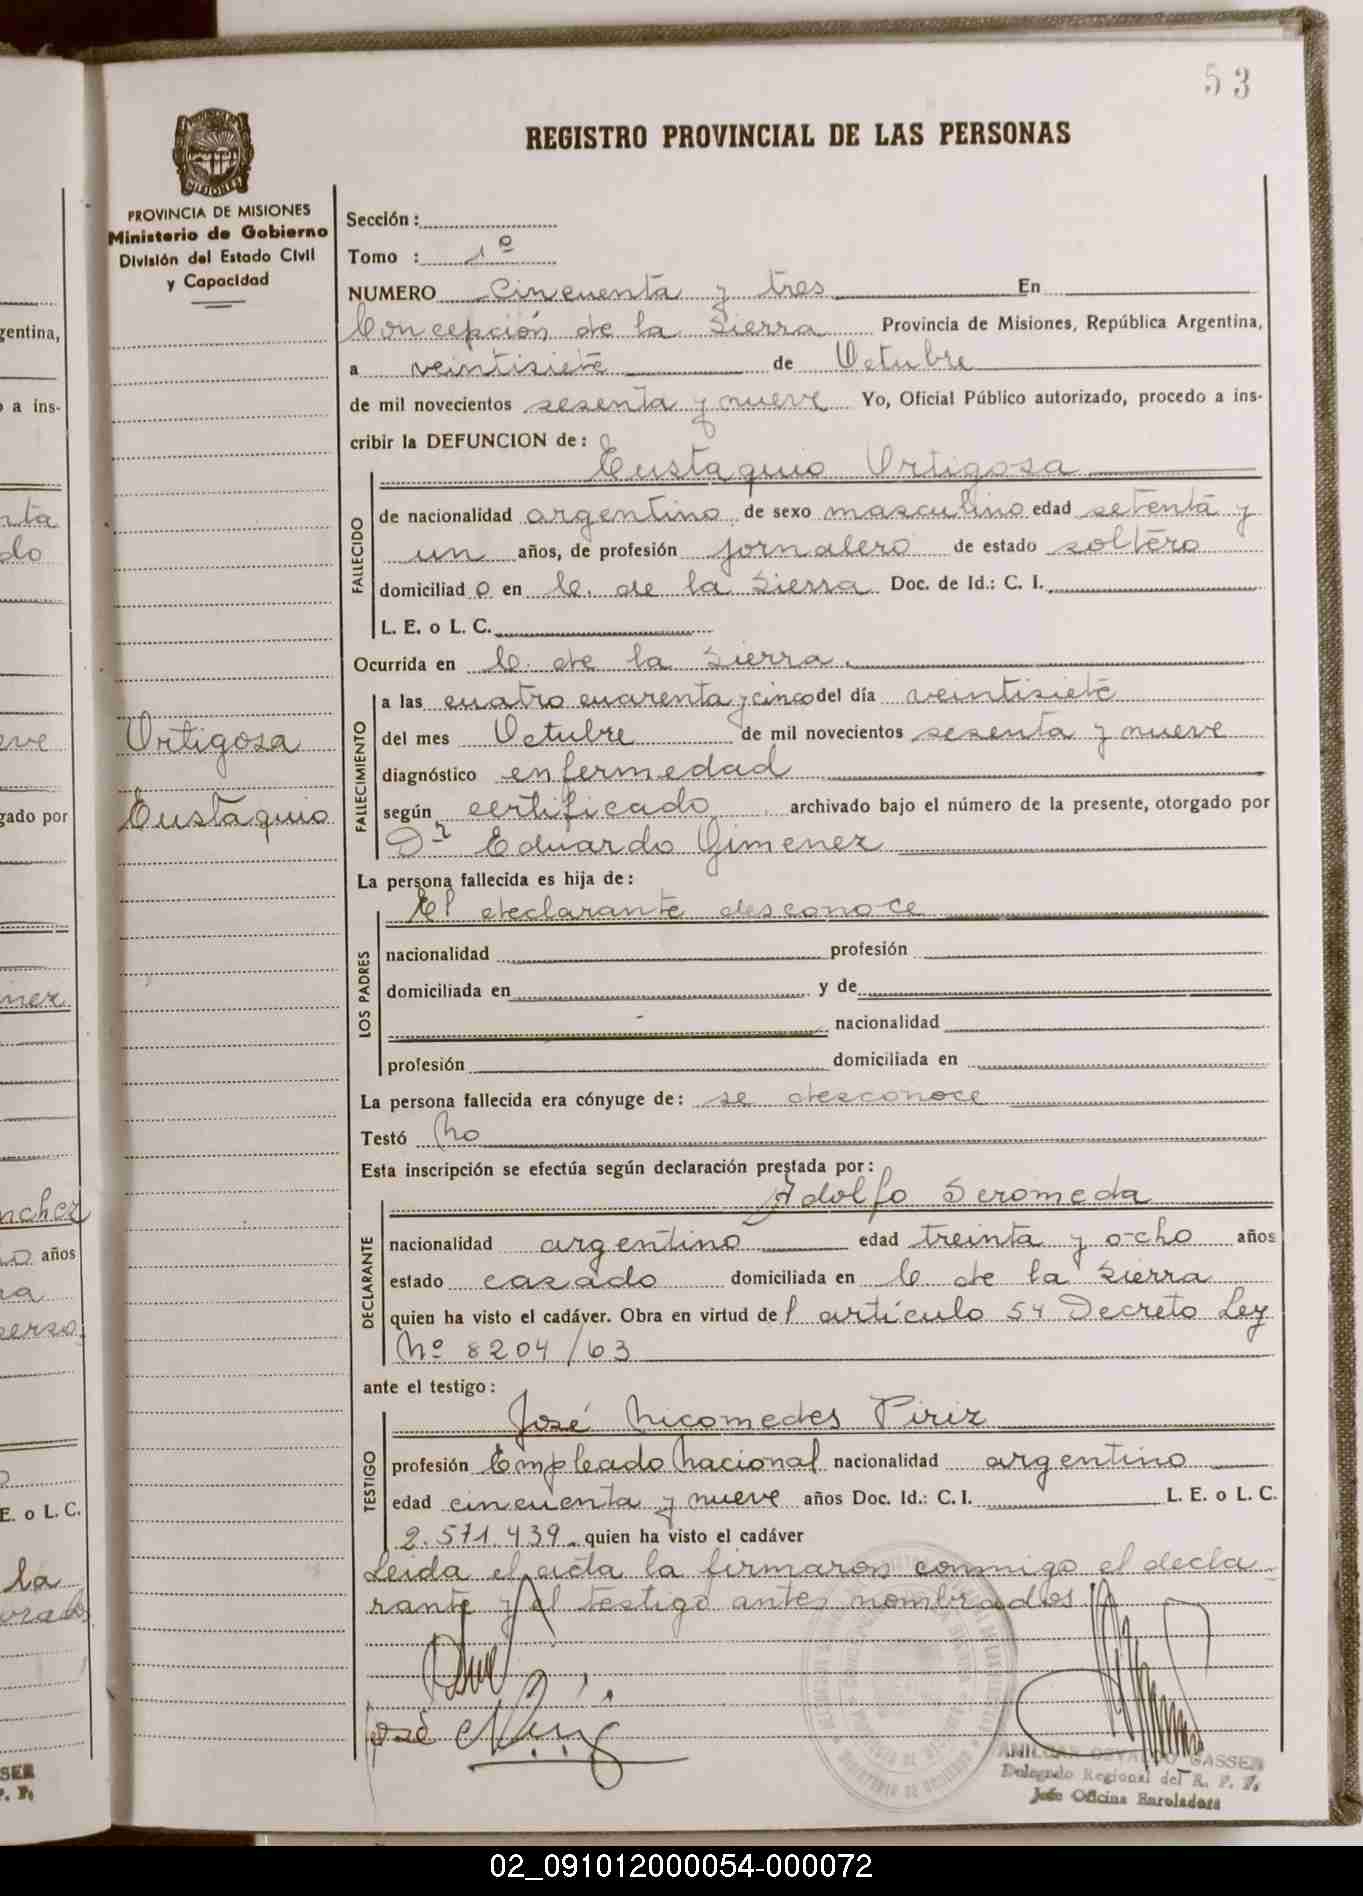 53
REGISTRO PROVINCIAL DE LAS PERSONAS
MISIONES
PROVINCIA DE MISIONES
Ministerio de Gobierno
División del Estado Civil
y Capacidad
Ortigosa
Eustaquio
Sección:
Tomo : 1º
NUMERO Cincuenta y tres En
Concepción de la Sierra Provincia de Misiones, República Argentina,
a veintisiete de Octubre
de mil novecientos sesenta y nueve Yo, Oficial Público autorizado, procedo a ins-
cribir la DEFUNCION de:
Eustaquio Ortigosa
FALLECIDO
de nacionalidad argentino de sexo masculino edad setenta y
un años, de profesión jornalero de estado soltero
domiciliad o en C. de la Sierra Doc. de Id.: C. I.
L. E. o L. C.
Ocurrida en C. de la Sierra.
FALLECIMIENTO
a las cuatro cuarenta y cinco del día veintisiete
del mes Octubre de mil novecientos sesenta y nueve
diagnóstico enfermedad
según certificado archivado bajo el número de la presente, otorgado por
Dr Eduardo Gimenez
La persona fallecida es hija de:
LOS PADRES
El declarante desconoce
nacionalidad profesión
domiciliada en y de
nacionalidad
profesión domiciliada en
La persona fallecida era cónyuge de: se desconoce
Testó No
Esta inscripción se efectúa según declaración prestada por:
DECLARANTE
Adolfo Seromeda
nacionalidad argentino edad treinta y ocho años
estado casado domiciliada en C de la Sierra
quien ha visto el cadáver. Obra en virtud de l artículo 54 Decreto Ley
Nº 8204/63
ante el testigo:
TESTIGO
José Nicomedes Piriz
profesión Empleado Nacional nacionalidad argentino
edad cincuenta y nueve años Doc. Id.: C. I. L. E. o L. C.
2.571.439. quien ha visto el cadáver
Leida el acta la firmaron conmigo el decla
rante y el testigo antes nombrados.
José N Piriz
AMILCAR OSVALDO GASSER
Delegado Regional del R. P. P.
Jefe Oficina Enroladora
02_091012000054-000072